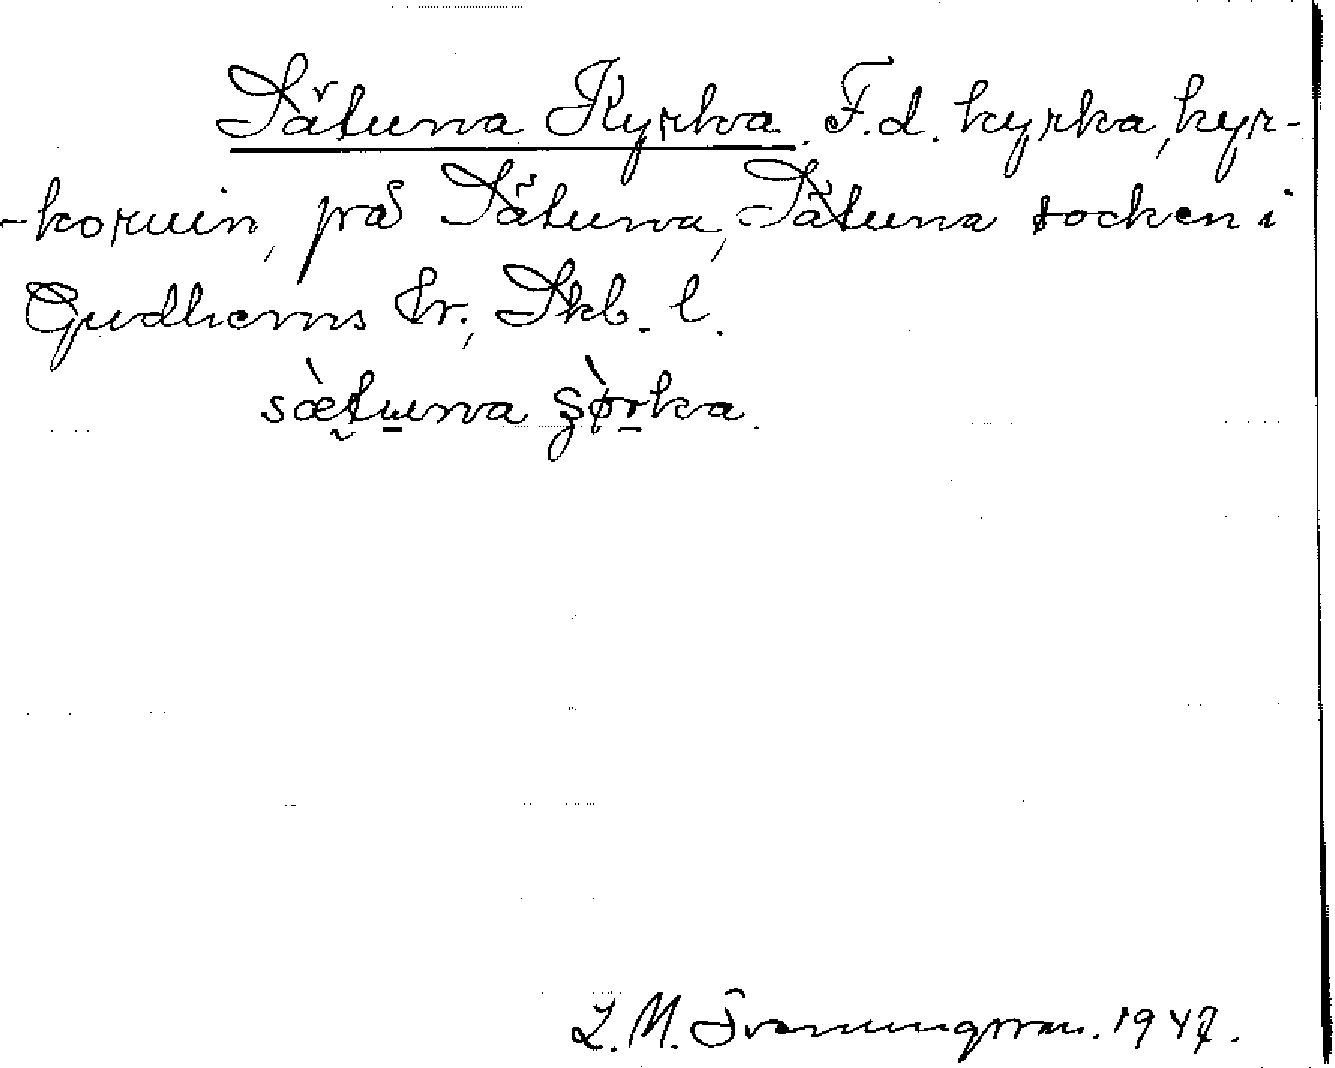 Sätuna Kyrka. F.d. kyrka, kyr-
-koruin, på Sätuna, Sätuna socken i
Gudhems hr., Skb. l.
sæ̀tu̲na şø̀r̲ka.
L. M. Svanungsson. 1947.